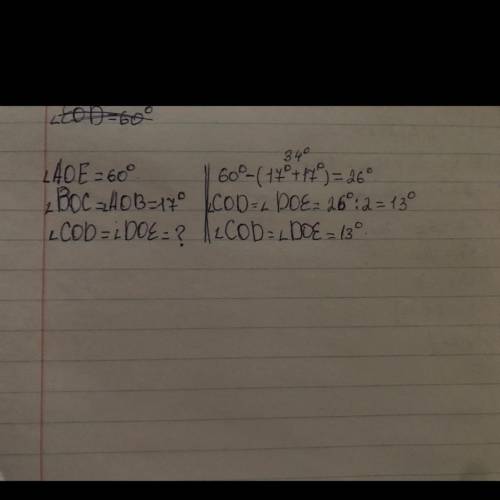 ∠COD=60°
∠AOE=60°
∠BOC=∠AOB=17°
∠COD=∠DOE=?
34°
60°-(17°+17°)=26°
∠COD=∠DOE=26°:2=13°
∠COD=∠DOE=13°.